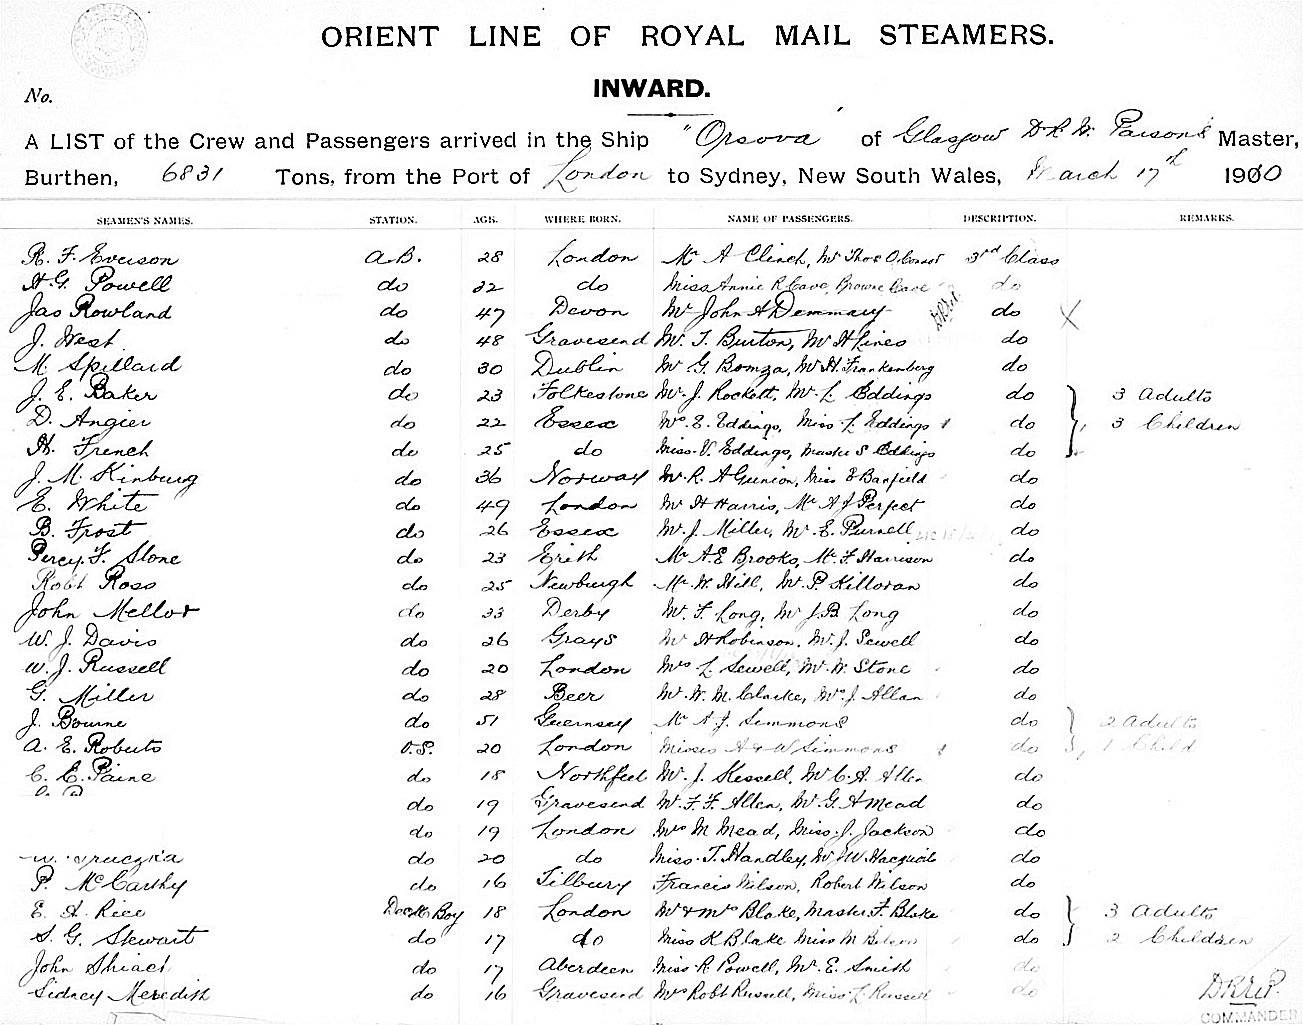 ORIENT LINE OF ROYAL MAIL STEAMERS.
INWARD.
No.
A LIST of the Crew and Passengers arrived in the Ship "Orsova" of Glasgow D R W. Parsons Master,
Burthen, 6831 Tons, from the Port of London to Sydney, New South Wales, March 17th 1900
SEAMEN'S NAMES. STATION. AGE. WHERE BORN. NAME OF PASSENGERS. DESCRIPTION. REMARKS.
R. F. Everson A.B. 28 London Mr A Clinch, Mr Thos O'Connor 3rd Class
H. G. Powell do 22 do Miss Annie R Cave, Browne Cave do
Jas Rowland do 47 Devon Mr John A Demmary do X
J. West do 48 Gravesend Mr. T. Burton, Mr H Lines do
M. Spillard do 30 Dublin Mr G. Bomza, Mr. H. Frankenberg do
J. E. Baker do 23 Folkestone Mr. J. Rockett, Mr. L Eddings do 3 Adults
D. Angier do 22 Essex Mrs. E. Eddings, Miss L Eddings do 3 Children
H. French do 25 do Miss V. Eddings, Master S Eddings do
J. M. Kinburg do 36 Norway Mr. R. A Gunion, Miss E Banfield do
E. White do 49 London Mr H Harris, Mr A J Perfect do
B. Frost do 26 Essex Mr. J. Miller, Mr E. Purnell do
Percy. F. Stone do 23 Erith Mr A. E Brooks, Mr. F. Harrison do
Robt Ross do 25 Newburgh Mr. W. Hill, Mr. P. Killoran do
John Mellor do 33 Derby Mr. F. Long, Mr J. B. Long do
W. J. Davis do 26 Grays Mr H Robinson, Mr. J. Sewell do
W. J. Russell do 20 London Mrs L. Sewell, Mr. W. Stone do
G. Miller do 28 Beer Mr. W. M. Clarke, Mr. J. Allan do
J. Bourne do 51 Guernsey Mr A J. Simmons do 2 Adults
A. E. Roberts O.S. 20 London Misses A & W Simmons do 1 Child
C. E. Paine do 18 Northfleet Mr. J. Kessell, Mr C. A. Allen do
do 19 Gravesend Mr. F. F. Allen, Mr. G. A Mead do
do 19 London Mrs M Mead, Miss. J. Jackson do
do 20 do Miss. T. Handley, Mr W. do
P. McCarthy do 16 Tilbury Francis Wilson, Robert Wilson do
E. A. Rice Deck Boy 18 London Mr & Mrs Blake, Master F. Blake do 3 Adults
S. G. Stewart do 17 do Miss K Blake Miss M do 2 Children
John Shiach do 17 Aberdeen Miss R Powell, Mr. E. Smith do
Sidney Meredith do 16 Gravesend Mrs Robt Russell, Miss L. Russell do
COMMANDER